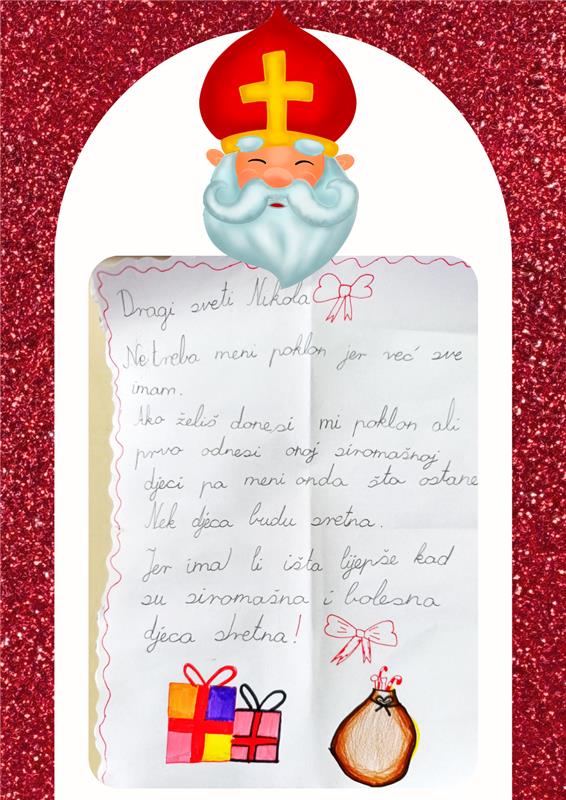 Dragi sveti Nikola
Ne treba meni poklon jer već sve
imam.
Ako želiš donesi mi poklon ali
prvo odnesi onoj siromašnoj
djeci pa meni onda šta ostane
Nek djeca budu sretna.
Jer ima li išta lijepše kad
su siromašna i bolesna
djeca sretna!